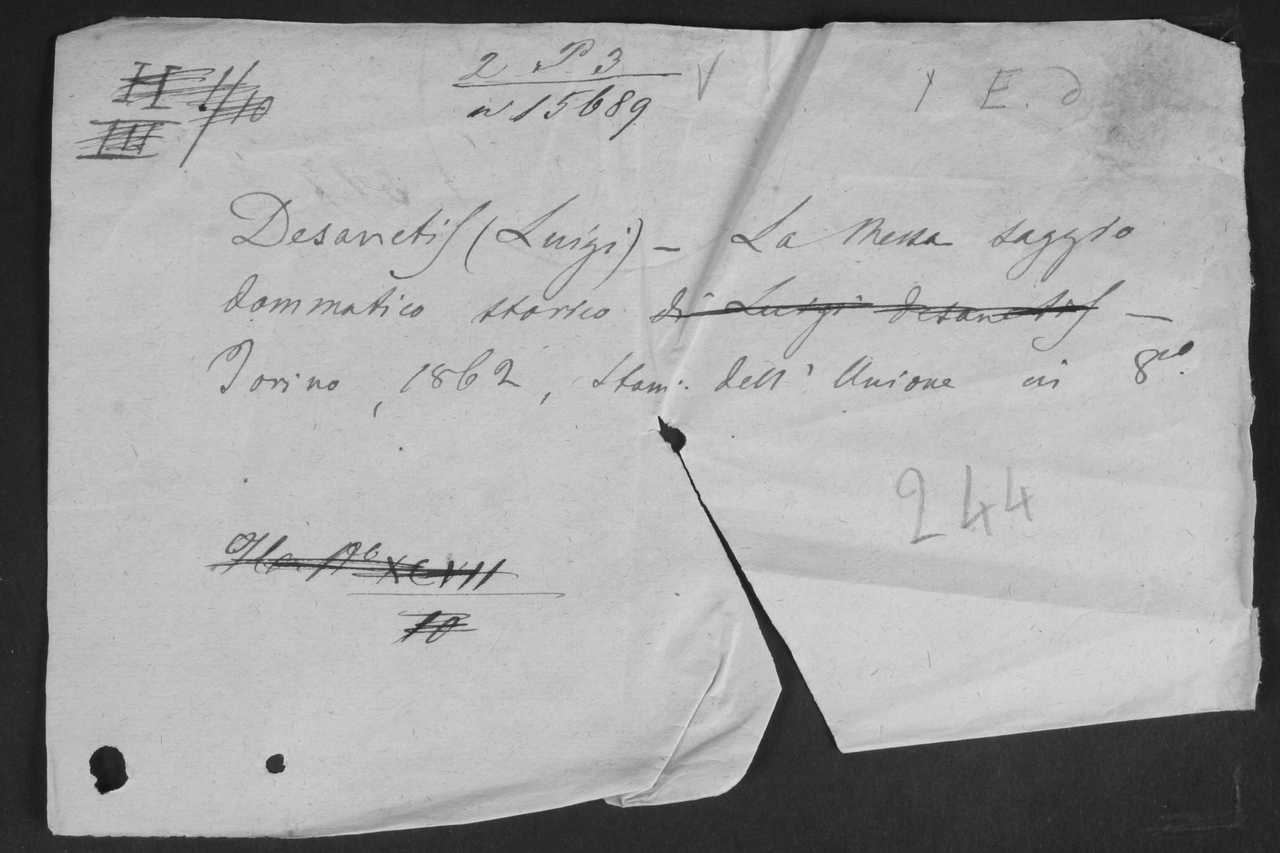 2 P. 3 V
n° 15689
Y E. d
II
III
Desanctis (Luigi) – La Messa saggio
dommatico storico di Luigi Desanctis –
Torino, 1862, stam: dell' Unione in 8vo.
244
XCVII
10